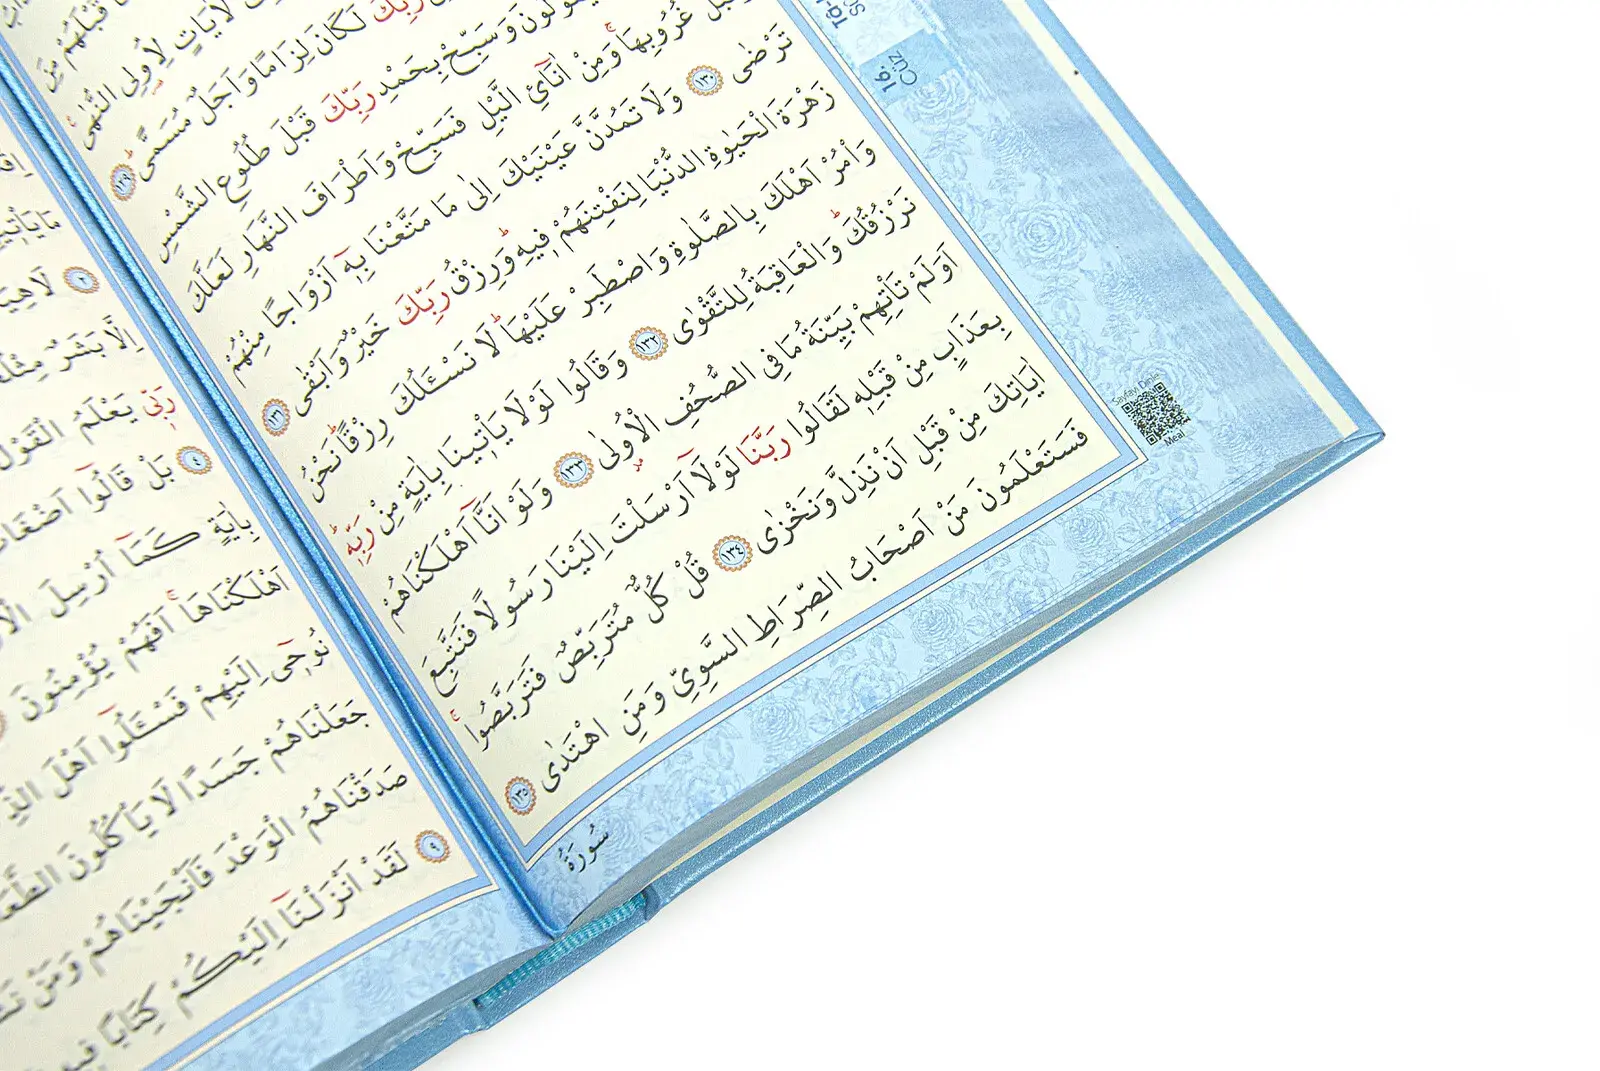 قَبْلَهُمْ مِنَ
لَاٰيَاتٍ لِاُولِي النُّهٰى
رَبِّكَ لَكَانَ لِزَامًا وَاَجَلٌ مُسَمًّى ﴿١٢٩﴾
وَسَبِّحْ بِحَمْدِ رَبِّكَ قَبْلَ طُلُوعِ الشَّمْسِ
غُرُوبِهَا وَمِنْ اٰنَآئِ الَّيْلِ فَسَبِّحْ وَاَطْرَافَ النَّهَارِ لَعَلَّكَ
تَرْضٰى ﴿١٣٠﴾ وَلَا تَمُدَّنَّ عَيْنَيْكَ اِلٰى مَا مَتَّعْنَا بِهٖٓ اَزْوَاجًا مِنْهُمْ
زَهْرَةَ الْحَيٰوةِ الدُّنْيَا لِنَفْتِنَهُمْ فٖيهِ وَرِزْقُ رَبِّكَ خَيْرٌ وَاَبْقٰى ﴿١٣١﴾
وَأْمُرْ اَهْلَكَ بِالصَّلٰوةِ وَاصْطَبِرْ عَلَيْهَا لَا نَسْـَٔلُكَ رِزْقًا نَحْنُ
نَرْزُقُكَ وَالْعَاقِبَةُ لِلتَّقْوٰى ﴿١٣٢﴾ وَقَالُوا لَوْلَا يَأْتٖينَا بِاٰيَةٍ مِنْ رَبِّهٖ
اَوَلَمْ تَأْتِهِمْ بَيِّنَةُ مَا فِي الصُّحُفِ الْاُولٰى ﴿١٣٣﴾ وَلَوْ اَنَّٓا اَهْلَكْنَاهُمْ
بِعَذَابٍ مِنْ قَبْلِهٖ لَقَالُوا رَبَّنَا لَوْلَٓا اَرْسَلْتَ اِلَيْنَا رَسُولًا فَنَتَّبِعَ
اٰيَاتِكَ مِنْ قَبْلِ اَنْ نَذِلَّ وَنَخْزٰى ﴿١٣٤﴾ قُلْ كُلٌّ مُتَرَبِّصٌ فَتَرَبَّصُوا
فَسَتَعْلَمُونَ مَنْ اَصْحَابُ الصِّرَاطِ السَّوِيِّ وَمَنِ اهْتَدٰى ﴿١٣٥﴾
سُورَةُ
16.
Cüz
Sayfayı Dinle
Meal
مَا يَأْتٖي
﴿٢﴾ لَاهِيَةً
اِلَّا بَشَرٌ مِثْلُكُمْ
رَبّٖي يَعْلَمُ الْقَوْلَ
﴿٤﴾ بَلْ قَالُٓوا اَضْغَاثُ
بِاٰيَةٍ كَمَٓا اُرْسِلَ الْاَوَّلُونَ
اَهْلَكْنَاهَا اَفَهُمْ يُؤْمِنُونَ
نُوحٖٓي اِلَيْهِمْ فَسْـَٔلُٓوا اَهْلَ الذِّكْرِ
جَعَلْنَاهُمْ جَسَدًا لَا يَأْكُلُونَ الطَّعَامَ
صَدَقْنَاهُمُ الْوَعْدَ فَاَنْجَيْنَاهُمْ وَمَنْ
﴿٩﴾ لَقَدْ اَنْزَلْنَٓا اِلَيْكُمْ كِتَابًا فٖيهِ